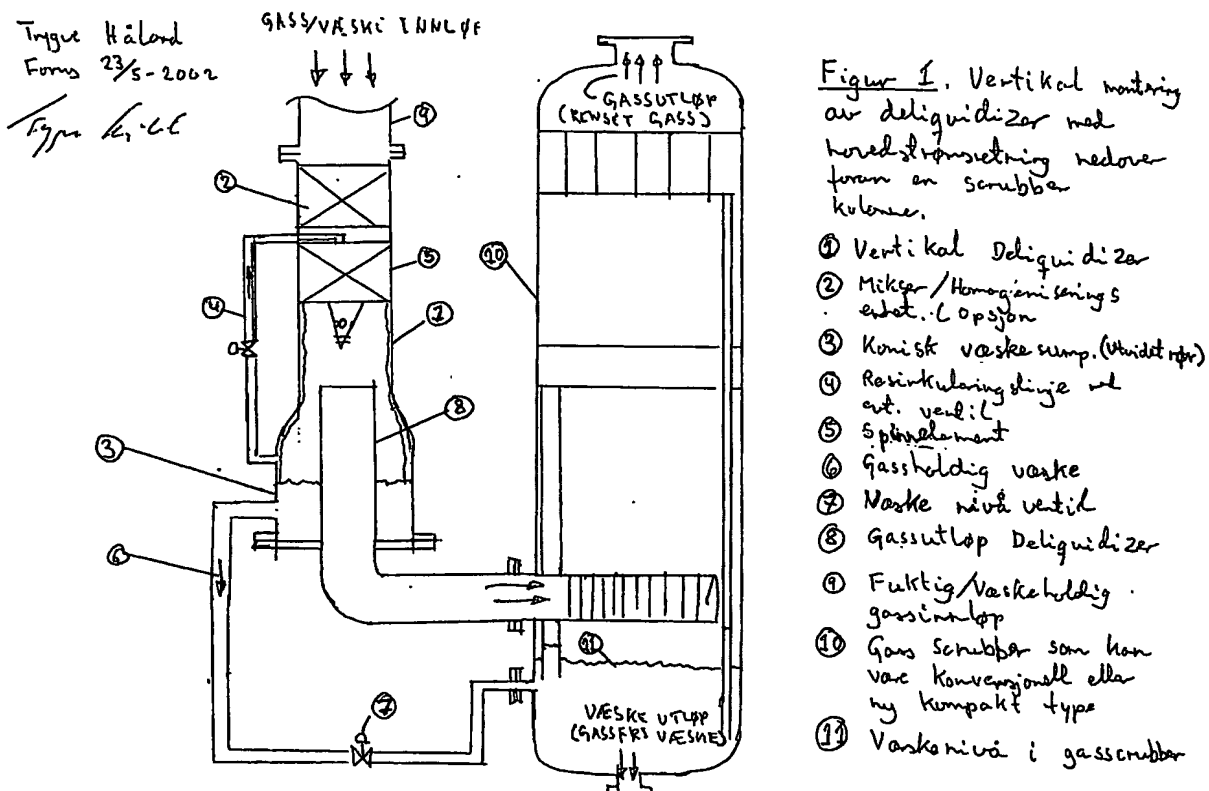 Trygve Håland
Forus 23/5-2002
GASS/VÆSKE INNLØP
GASSUTLØP
(RENSET GASS)
VÆSKE UTLØP
(GASSFRI VÆSKE)
9
2
5
4
1
8
3
6
7
10
11
Figur 1. Vertikal montering
av deliquidizer med
hovedstrømsretning nedover
foran en scrubber
kolonne.
1 Vertikal Deliquidizer
2 Mikser/Homogeniserings
enhet. (opsjon
3 Konisk væskesump. (Utvidet rør)
4 Resirkuleringslinje
evt. ventil
5 Spinnelement
6 Gassholdig væske
7 Væske nivå ventil
8 Gassutløp Deliquidizer
9 Fuktig/Væskeholdig
gassinnløp
10 Gass Scrubber som kan
være konvensjonell eller
ny kompakt type
11 Væskenivå i gasscrubber